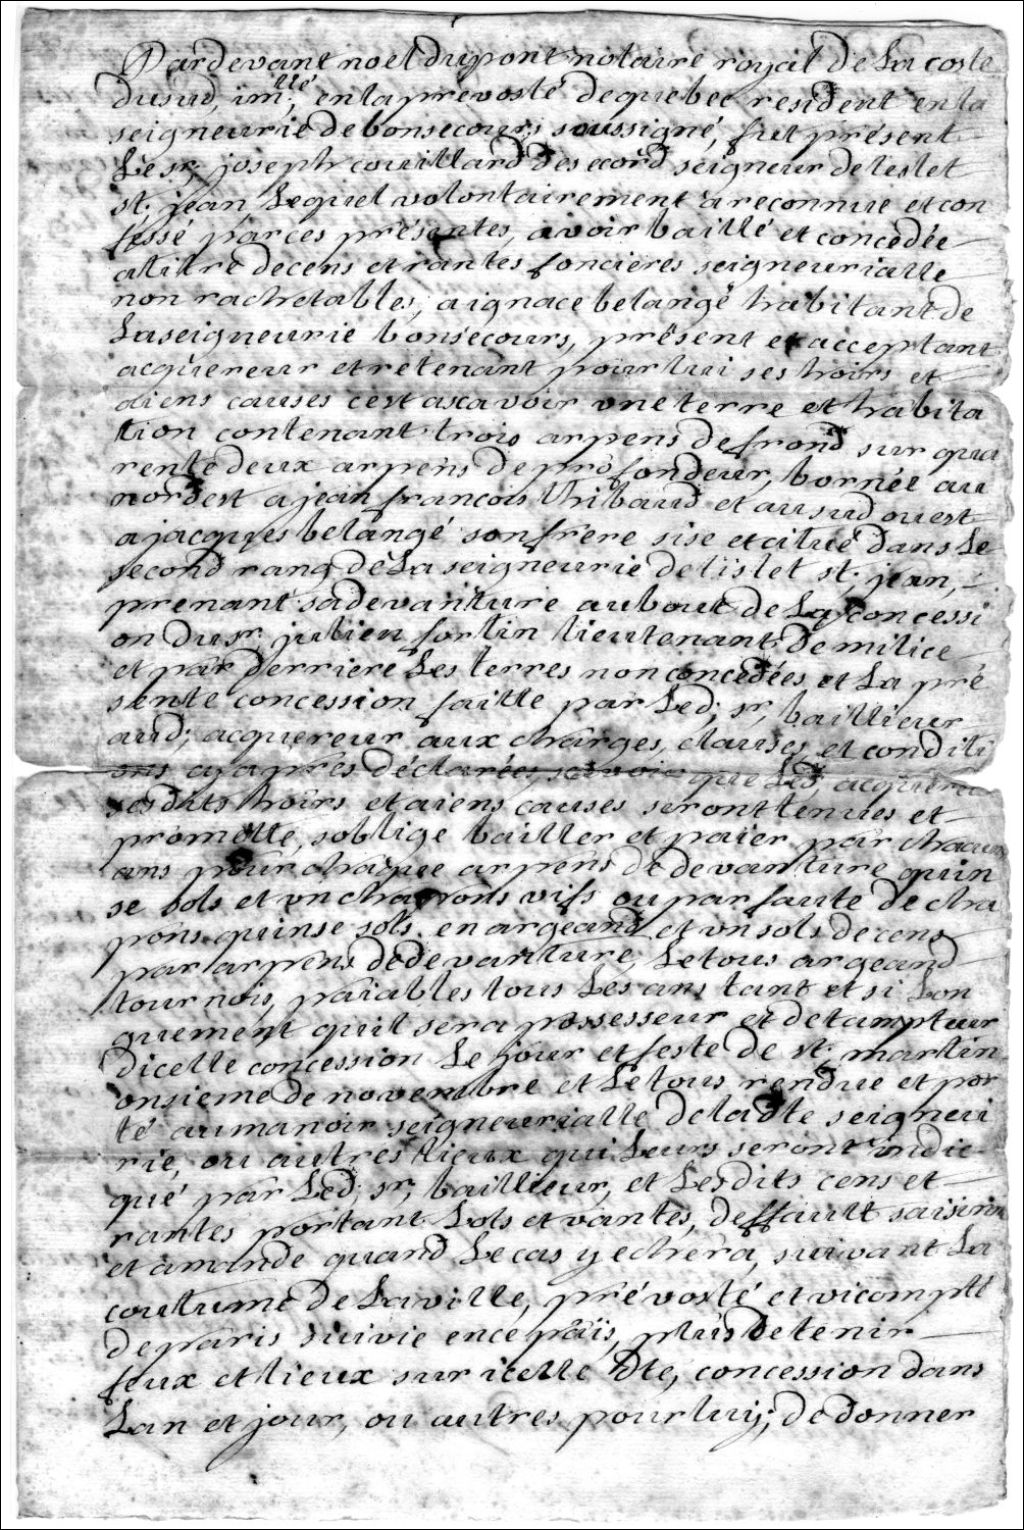 Pardevant noel dupont notaire royal de La coste
dusud, im.lle, en la prevosté de quebec resident en la
seigneurie de bonsecours soussigné, fut présent
Le sr, joseph couillard des ecord seigneur de leslet
st; jean, Lequel volontairement a reconnue et con
fessé par ces présentes, avoir baillé et concedée
atitre de cens et rantes foncières seigneurialle
non rachetables, a ignace belangé habitant de
La seigneurie bonsécours, présent et acceptant
acquereur et retenant pour lui ses hoirs et
aiens causes cest ascavoir une terre et habita
tion contenant trois arpens de frond sur qua
rente deux arpens de profondeur, bornée au
nordest a jean francois thibaud et au sud ouest
a jacques belangé son frere sise et citué dans Le
second rang de La seigneurie de lislet st; jean,
prenant sa devanture au bout de La concessi
on du sr. julien fortin lieutenant de milice
et par derriere Les terres non concedées et La pré
sente concession faitte par Led; sr, baillieur
aud; acquereur aux charges, clauses et conditi
ons cy après déclarées, scavoir que Led, acquereur
sesdits hoirs et aiens causes seront tenues et
promette, soblige bailler et paier par chacun
ans pour chaque arpens de devanture quin
se sols et un chapons vifs ou par faute de cha
pons quinse sols en argeand et un sols de cens
par arpens de devanture, Le tous argeand
tournois, païables tous Les ans tant et si Lon
guement quil sera possesseur et detampteur
dicelle concession Le jour et feste de st; martin
onsieme de novembre et Le tous rendue et por
té au manoir seigneurialle de la dte seigneu
rie, ou autres lieux qui Leurs seront indic
qué par Led; sr, baillieur, et Lesdits cens et
rantes portant Lots et vantes, deffault saisinne
et amande quand Le cas y echera, suivant La
coutume de La ville, prévosté et vicompté
de paris suivie en ce païs, plus de tenir
feux et lieux sur icelle dte, concession dans
Lan et jour, ou autres pour luy; de donner